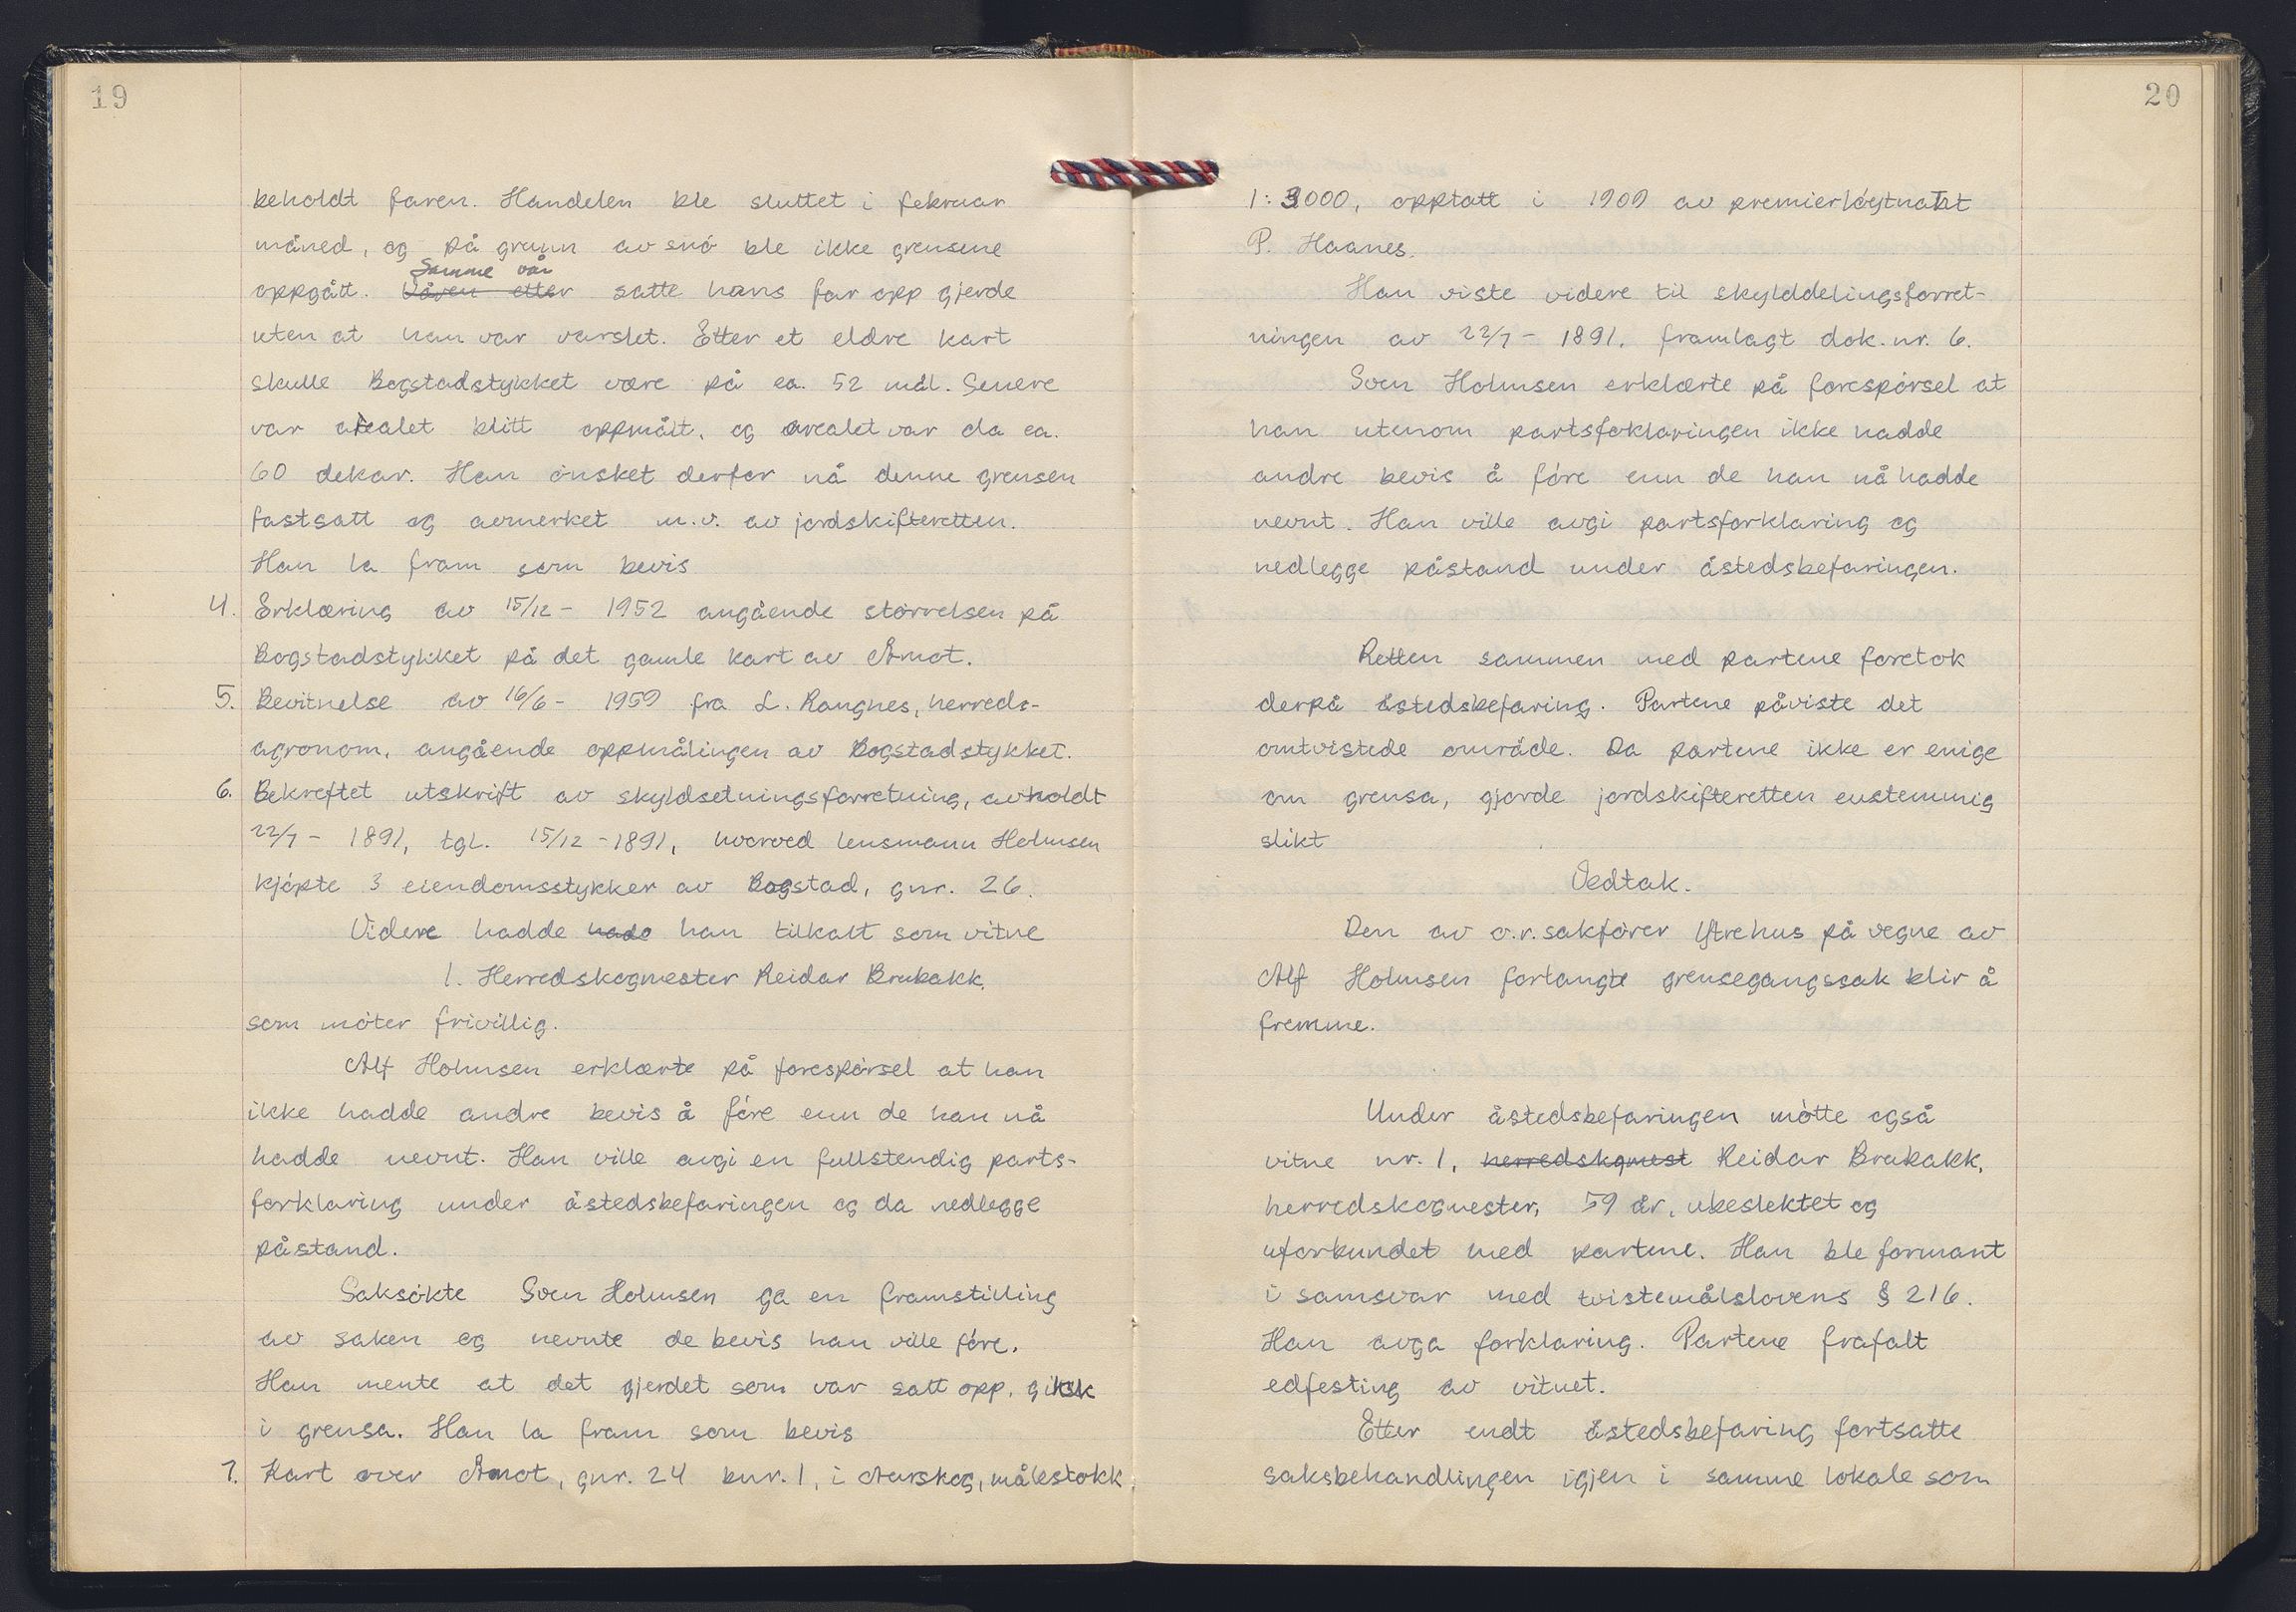 19
beholdt faren. Handelen ble sluttet i februar
måned, og på grunn av snö ble ikke grensene
Samme vår
oppgått. Våren etter satte hans far opp gjerde
uten at han var varslet. Etter et eldre kart
skulle Bogstadstykket være på ca. 52 mål. Senere
var arealet blitt oppmålt, og arealet var da ca.
60 dekar. Han önsket derfor nå denne grensen
fastsatt og avmerket m.v. av jordskifteretten.
Han la fram som bevis
4. Erklæring av 15/12 - 1952 angående störrelsen på
Bogstadstykket på det gamle kart av Åmot.
5. Bevitnelse av 16/6 - 1959 fra L. Rangnes, herreds-
agronom, angående oppmålingen av Bogstadstykket.
6. Bekreftet utskrift av skyldsetningsforretning, avholdt
22/7 - 1891, tgl. 15/12 - 1891, hvorved lensmann Holmsen
kjöpte 3 eiendomsstykker av Bogstad, gnr. 26.
Videre hadde hado han tilkalt som vitne
1. Herredskogmester Reidar Brubakk,
som möter frivillig.
Alf Holmsen erklærte på forespörsel at han
ikke hadde andre bevis å före enn de han nå
hadde nevnt. Han ville avgi en fullstendig parts-
forklaring under åstedsbefaringen og da nedlegge
påstand.
Saksökte Sven Holmsen ga en framstilling
av saken og nevnte de bevis han ville före.
Han mente at det gjerdet som var satt opp, gikk
i grensa. Han la fram som bevis
7. Kart over Åmot, gnr. 24 bnr. 1, i Aurskog, målestokk
20
1: 3000, opptatt i 1909 av premierlöytnant
P. Haanes.
Han viste videre til skylddelingsforret-
ningen av 22/7 - 1891, framlagt dok. nr. 6.
Sven Holmsen erklærte på forespörsel at
han utenom partsfoklaringen ikke hadde
andre bevis å före enn de han nå hadde
nevnt. Han ville avgi partsforklaring og
nedlegge påstand under åstedsbefaringen.
Retten sammen med partene foretok
derpå åstedsbefaring. Partene påviste det
omtvistede område. Da partene ikke er enige
om grensa, gjorde jordskifteretten enstemmig
slikt
Vedtak.
Den av o.r.sakförer Ytrehus på vegne av
Alf Holmsen forlangte grensegangssak blir å
fremme.
Under åstedsbefaringen mötte også
vitne nr. 1, herredskogmest Reidar Brubakk,
herredskogmester, 59 år, ubeslektet og
uforbundet med partene. Han ble formant
i samsvar med tvistemålslovens § 216.
Han avga forklaring. Partene frafalt
edfesting av vitnet.
Etter endt åstedsbefaring fortsatte
saksbehandlingen igjen i samme lokale som